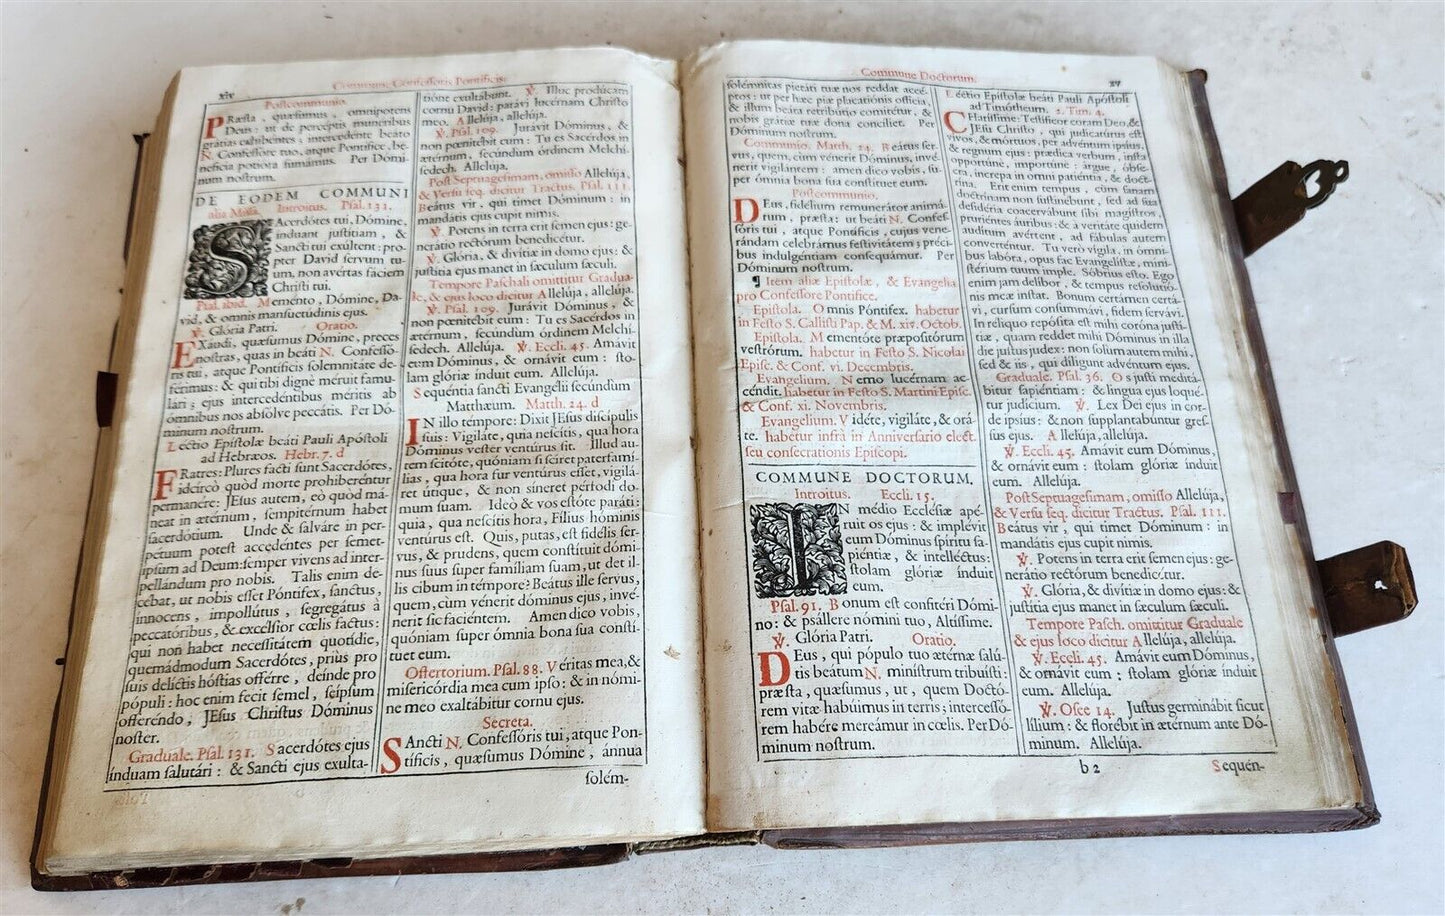 xiv
Commune Confessoris Pontificis.
Postcommunio.
PRæsta, quæsumus, omnipotens
Deus: ut de perceptis muneribus
gratias exhibentes; intercedente beáto
N. Confessóre tuo, atque Pontífice, be-
nefícia potióra sumámus. Per Dómi-
num nostrum.
DE EODEM COMMUNI
alia Missa. Introitus. Psal. 131.
SAcerdótes tui, Dómine,
índuant justítiam, &
Sancti tui exúltent: pro-
pter David servum tu-
um, non avértas fáciem
Christi tui.
Psal. ibid. Meménto, Dómine, Da-
vid, & omnis mansuetúdinis ejus.
℣. Glória Patri. Oratio.
EXáudi, quæsumus Dómine, preces
nostras, quas in beáti N. Confessó-
ris tui, atque Pontíficis solemnitáte de-
férimus: & qui tibi dignè méruit famu-
lári; ejus intercedéntibus méritis ab
ómnibus nos absólve peccátis. Per Dó-
minum nostrum.
Léctio Epístolæ beáti Pauli Apóstoli
ad Hebræos. Hebr. 7. d
FRatres: Plures facti sunt Sacerdótes,
idcírcò quòd morte prohiberéntur
permanére: JEsus autem, eò quòd má-
neat in ætérnum, sempitérnum habet
sacerdótium. Unde & salváre in per-
pétuum potest accedéntes per semet-
ipsum ad Deum: semper vivens ad inter-
pellándum pro nobis. Talis enim de-
cébat, ut nobis esset Póntifex, sanctus,
ínnocens, impollútus, segregátus à
peccatóribus, & excélsior cœlis factus:
qui non habet necessitátem quotídie,
quemádmodum Sacerdótes, priùs pro
suis delíctis hóstias offérre, deínde pro
pópuli: hoc enim fecit semel, seípsum
offeréndo, JEsus Christus Dóminus
noster.
Graduale. Psal. 131. Sacerdótes ejus
índuam salutári: & Sancti ejus exulta-
tióne exultábunt. ℣. Illuc prodúcam
cornu David: parávi lucérnam Christo
meo. Allelúja, allelúja.
℣. Psal. 109. Jurávit Dóminus, &
non pœnitébit eum: Tu es Sacérdos in
ætérnum, secúndum órdinem Melchí-
sedech. Allelúja.
Post Septuagesimam, omisso Allelúja,
& Versu seq. dicitur Tractus. Psal. 111.
Beátus vir, qui timet Dóminum: in
mandátis ejus cupit nimis.
℣. Potens in terra erit semen ejus: ge-
nerátio rectórum benedicétur.
℣. Glória, & divítiæ in domo ejus: &
justítia ejus manet in sæculum sæculi.
Tempore Paschali omittitur Gradua-
le, & ejus loco dicitur Allelúja, allelúja.
℣. Psal. 109. Jurávit Dóminus, &
non pœnitébit eum: Tu es Sacérdos in
ætérnum, secúndum órdinem Melchí-
sedech. Allelúja. ℣. Eccli. 45. Amávit
eum Dóminus, & ornávit eum: sto-
lam glóriæ índuit eum. Allelúja.
Sequéntia sancti Evangélii secúndùm
Matthæum. Matth. 24. d
IN illo témpore: Dixit JEsus discípulis
suis: Vigiláte, quia nescítis, qua hora
Dóminus vester ventúrus sit. Illud au-
tem scitóte, quóniam si sciret paterfamí-
lias, qua hora fur ventúrus esset, vigilá-
ret útique, & non síneret pérfodi do-
mum suam. Ideò & vos estóte paráti:
quia, qua nescítis hora, Fílius hóminis
ventúrus est. Quis, putas, est fidélis ser-
vus, & prudens, quem constítuit dómi-
nus suus super famíliam suam, ut det il-
lis cibum in témpore? Beátus ille servus,
quem, cùm vénerit dóminus ejus, invé-
nerit sic faciéntem. Amen dico vobis,
quóniam super ómnia bona sua constí-
tuet eum.
Offertorium. Psal. 88. Véritas mea, &
misericórdia mea cum ipso: & in nómi-
ne meo exaltábitur cornu ejus.
Secreta.
SAncti N. Confessóris tui, atque Pon-
tíficis, quæsumus Dómine, ánnua
solém-
Commune Doctorum.
xv
solémnitas pietáti tuæ nos reddat accé-
ptos: ut per hæc piæ placatiónis offícia,
& illum beáta retribútio comitétur, &
nobis grátiæ tuæ dona concíliet. Per
Dóminum nostrum.
Communio. Matth. 24. Beátus ser-
vus, quem, cùm vénerit Dóminus, invé-
nerit vigilántem: amen dico vobis, su-
per ómnia bona sua constítuet eum.
Postcommunio.
DEus, fidélium remunerátor animá-
rum, præsta: ut beáti N. Confes-
sóris tui, atque Pontíficis, cujus vene-
rándam celebrámus festivitátem; préci-
bus indulgéntiam consequámur. Per
Dóminum nostrum.
¶ Item aliæ Epistolæ, & Evangelia
pro Confessore Pontifice.
Epistola. Omnis Póntifex. habetur
in Festo S. Callisti Pap. & M. xiv. Octob.
Epistola. Mementóte præpositórum
vestrórum. habetur in Festo S. Nicolai
Episc. & Conf. vi. Decembris.
Evangelium. Nemo lucérnam ac-
céndit. habetur in Festo S. Martini Episc.
& Conf. xi. Novembris.
Evangelium. Vidéte, vigiláte, & orá-
te. habetur infrà in Anniversario elect.
seu consecrationis Episcopi.
COMMUNE DOCTORUM.
Introitus. Eccli. 15.
IN médio Ecclésiæ apé-
ruit os ejus: & implévit
eum Dóminus spíritu sa-
piéntiæ, & intelléctus:
stolam glóriæ índuit
eum.
Psal. 91. Bonum est confitéri Dómi-
no: & psállere nómini tuo, Altíssime.
℣. Glória Patri. Oratio.
DEus, qui pópulo tuo ætérnæ salú-
tis beátum N. minístrum tribuísti:
præsta, quæsumus, ut, quem Doctó-
rem vitæ habúimus in terris; intercessó-
rem habére mereámur in cœlis. Per Dó-
minum nostrum.
Léctio Epístolæ beáti Pauli Apóstoli
ad Timótheum. 2. Tim. 4.
CHaríssime: Testíficor coram Deo, &
JEsu Christo, qui judicatúrus est
vivos, & mórtuos, per advéntum ipsíus,
& regnum ejus: prædica verbum, insta
opportúne, importúne: árgue, óbse-
cra, íncrepa in omni patiéntia, & doct-
rína. Erit enim tempus, cùm sanam
doctrínam non sustinébunt, sed ad sua
desidéria coacervábunt sibi magístros,
pruriéntes áuribus: & à veritáte quidem
audítum avértent, ad fábulas autem
converténtur. Tu verò vígila, in ómni-
bus labóra, opus fac Evangelístæ, mini-
stérium tuum imple. Sóbrius esto. Ego
enim jam delíbor, & tempus resolutió-
nis meæ instat. Bonum certámen certá-
vi, cursum consummávi, fidem servávi.
In réliquo repósita est mihi coróna justí-
tiæ, quam reddet mihi Dóminus in illa
die justus judex: non solùm autem mihi,
sed & iis, qui díligunt advéntum ejus.
Graduale. Psal. 36. Os justi meditá-
bitur sapiéntiam: & lingua ejus loqué-
tur judícium. ℣. Lex Dei ejus in cor-
de ipsíus: & non supplantabúntur gres-
sus ejus. Allelúja, allelúja.
℣. Eccli. 45. Amávit eum Dóminus,
& ornávit eum: stolam glóriæ índuit
eum. Allelúja.
Post Septuagesimam, omisso Allelúja,
& Versu seq. dicitur Tractus. Psal. 111.
Beátus vir, qui timet Dóminum: in
mandátis ejus cupit nimis.
℣. Potens in terra erit semen ejus: ge-
nerátio rectórum benedicétur.
℣. Glória, & divítiæ in domo ejus: &
justítia ejus manet in sæculum sæculi.
Tempore Pasch. omittitur Graduale
& ejus loco dicitur Allelúja, allelúja.
℣. Eccli. 45. Amávit eum Dóminus,
& ornávit eum; stolam glóriæ índuit
eum. Allelúja.
℣. Osee 14. Justus germinábit sicut
lílium: & florébit in ætérnum ante Dó-
minum. Allelúja.
b 2
Sequén-